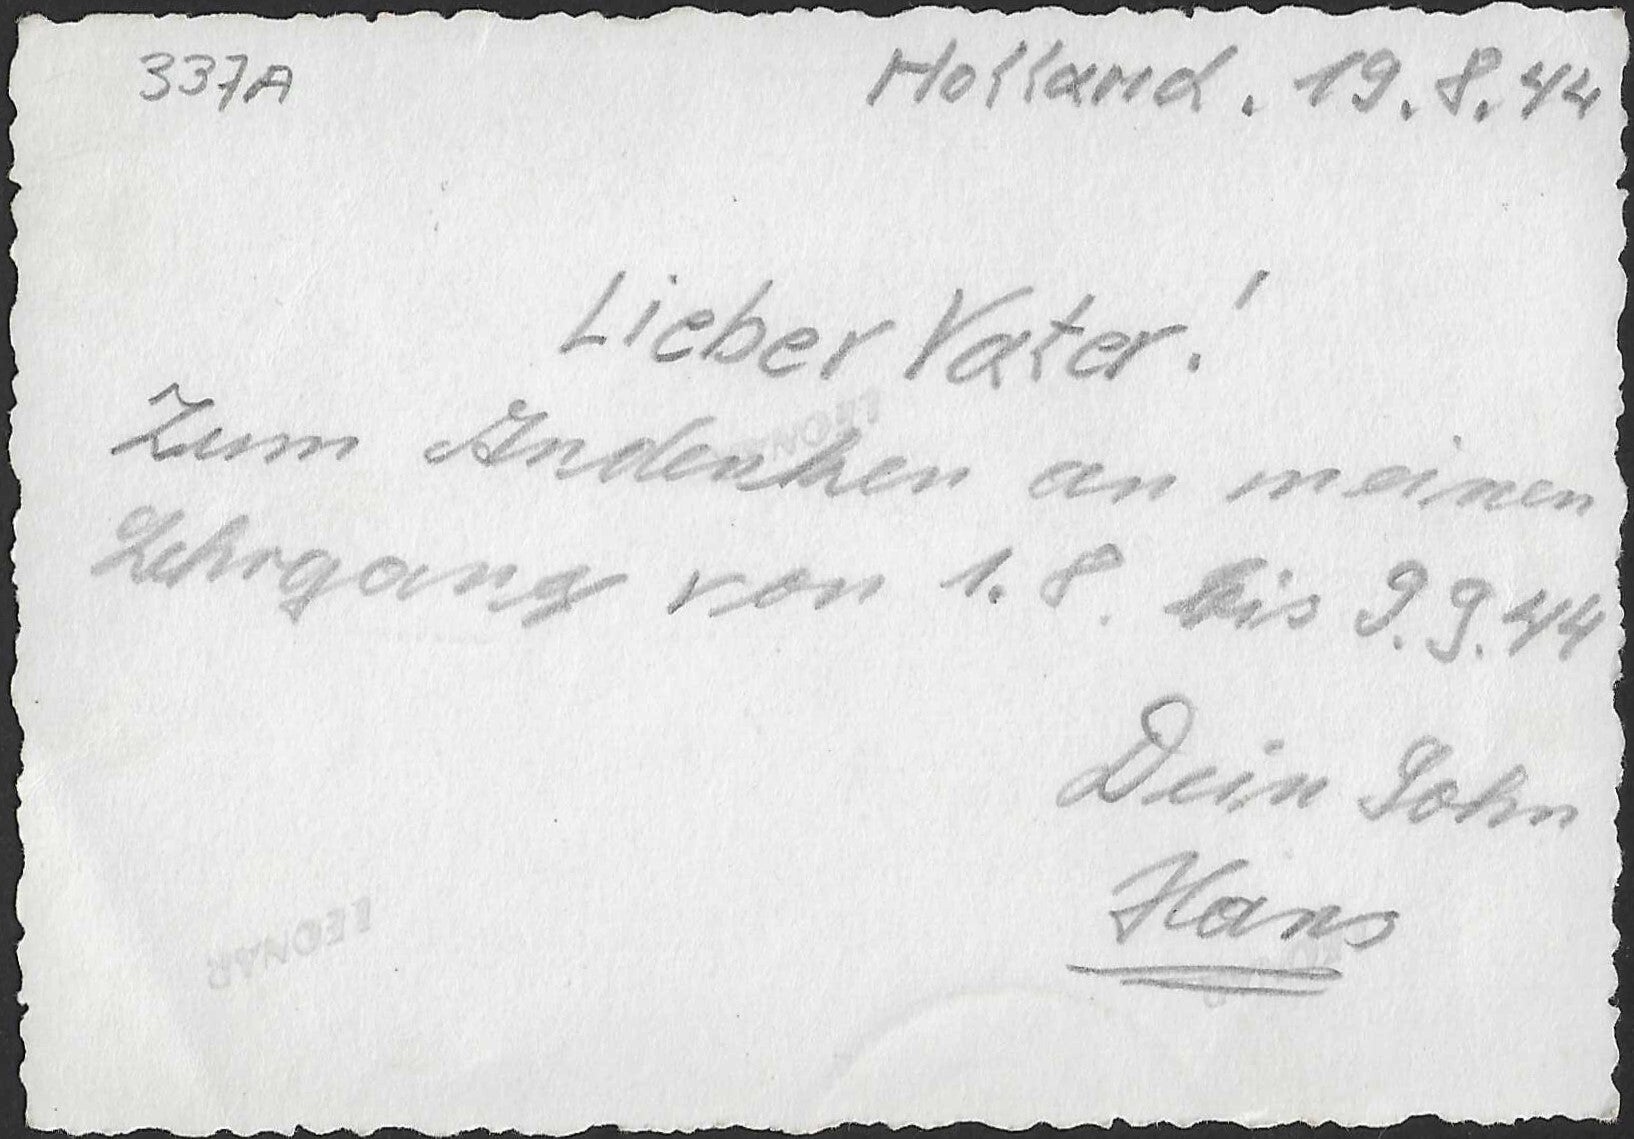 337A
Holland. 19.8.44
Lieber Vater!
LEONAR
Zum Andenken an meinen
Lehrgang von 1.8. bis 9.9.44
Dein Sohn
Hans
LEONAR